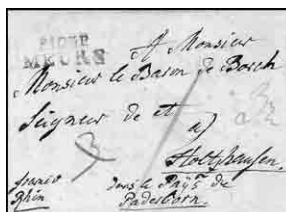 P101P
MEURS
A Monsieur
Monsieur le Baron de Bosch
Seigneur de et
a)
Holtzhausen.
franco
Rhin
dans le Pays de
Paderborn.